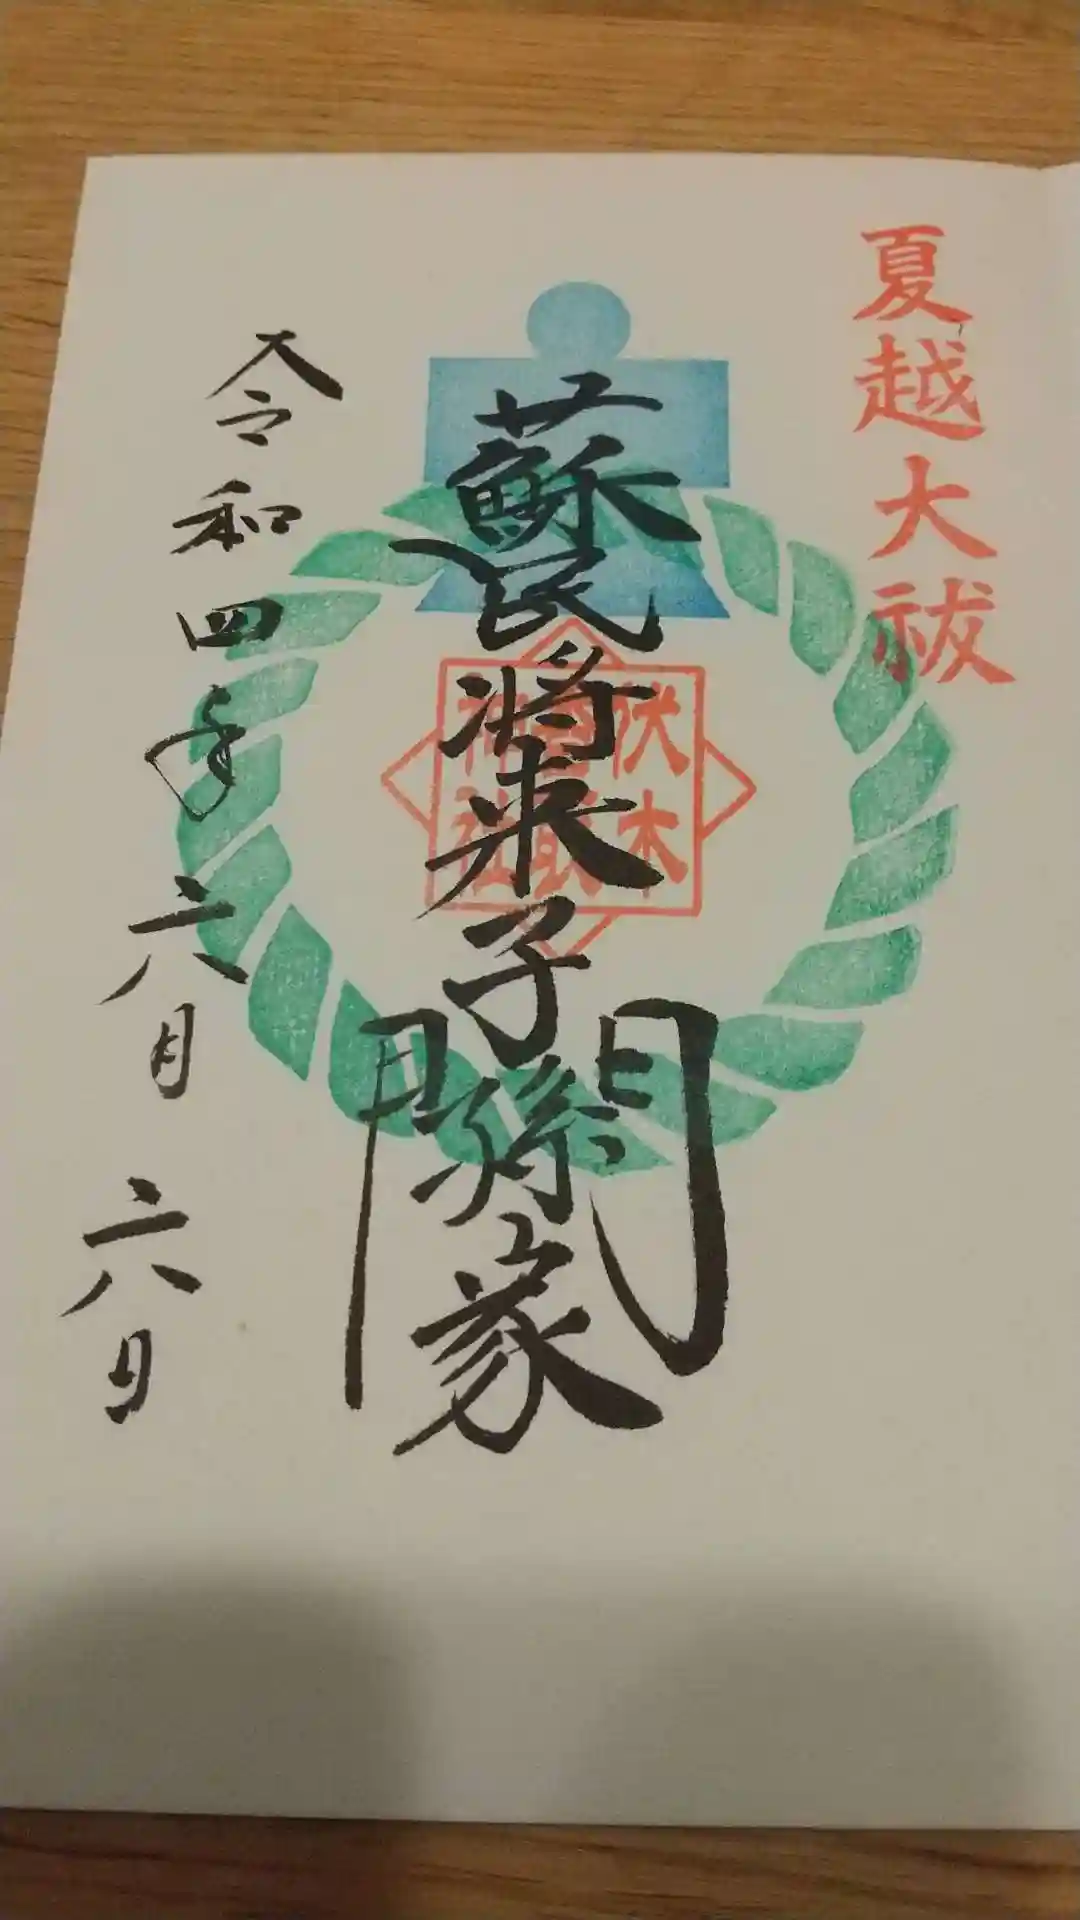 夏越大祓
蘇民將来子孫家門
伏木
神社
令和四年六月六日